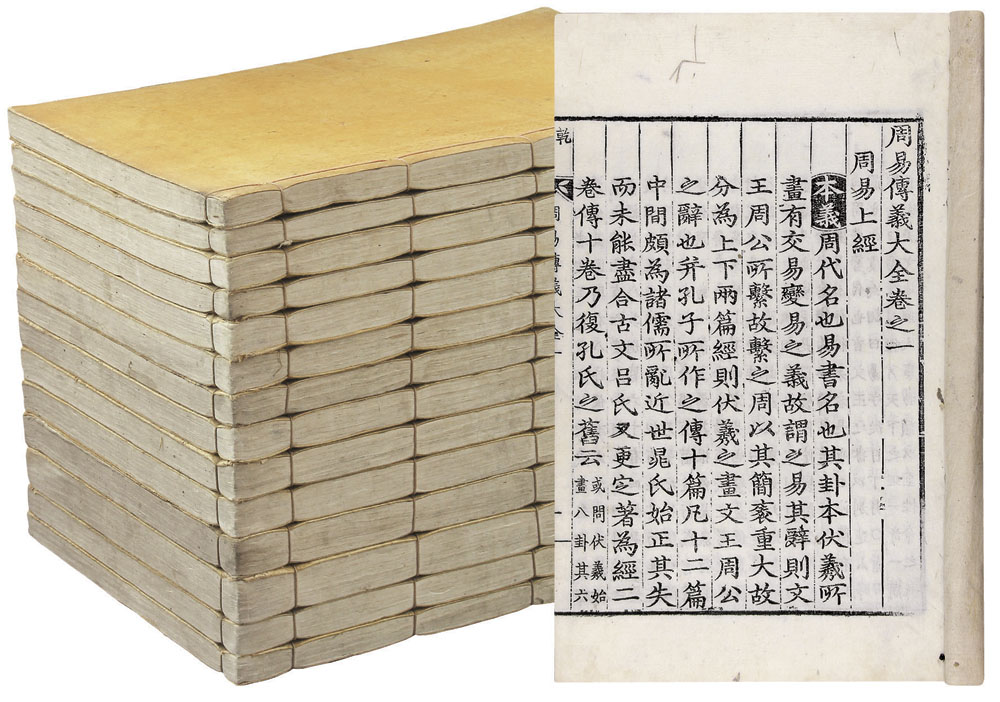 周易傳義大全卷之一
周易上經
本義周代名也易書名也其卦本伏羲所
畫有交易變易之義故謂之易其辭則文
王周公所繫故繫之周以其簡袠重大故
分為上下兩篇經則伏羲之畫文王周公
之辭也并孔子所作之傳十篇凡十二篇
中間頗為諸儒所亂近世晁氏始正其失
而未能盡合古文呂氏又更定著為經二
卷傳十卷乃復孔氏之舊云或問伏羲始
畫八卦其六
乾
周易傳義大全